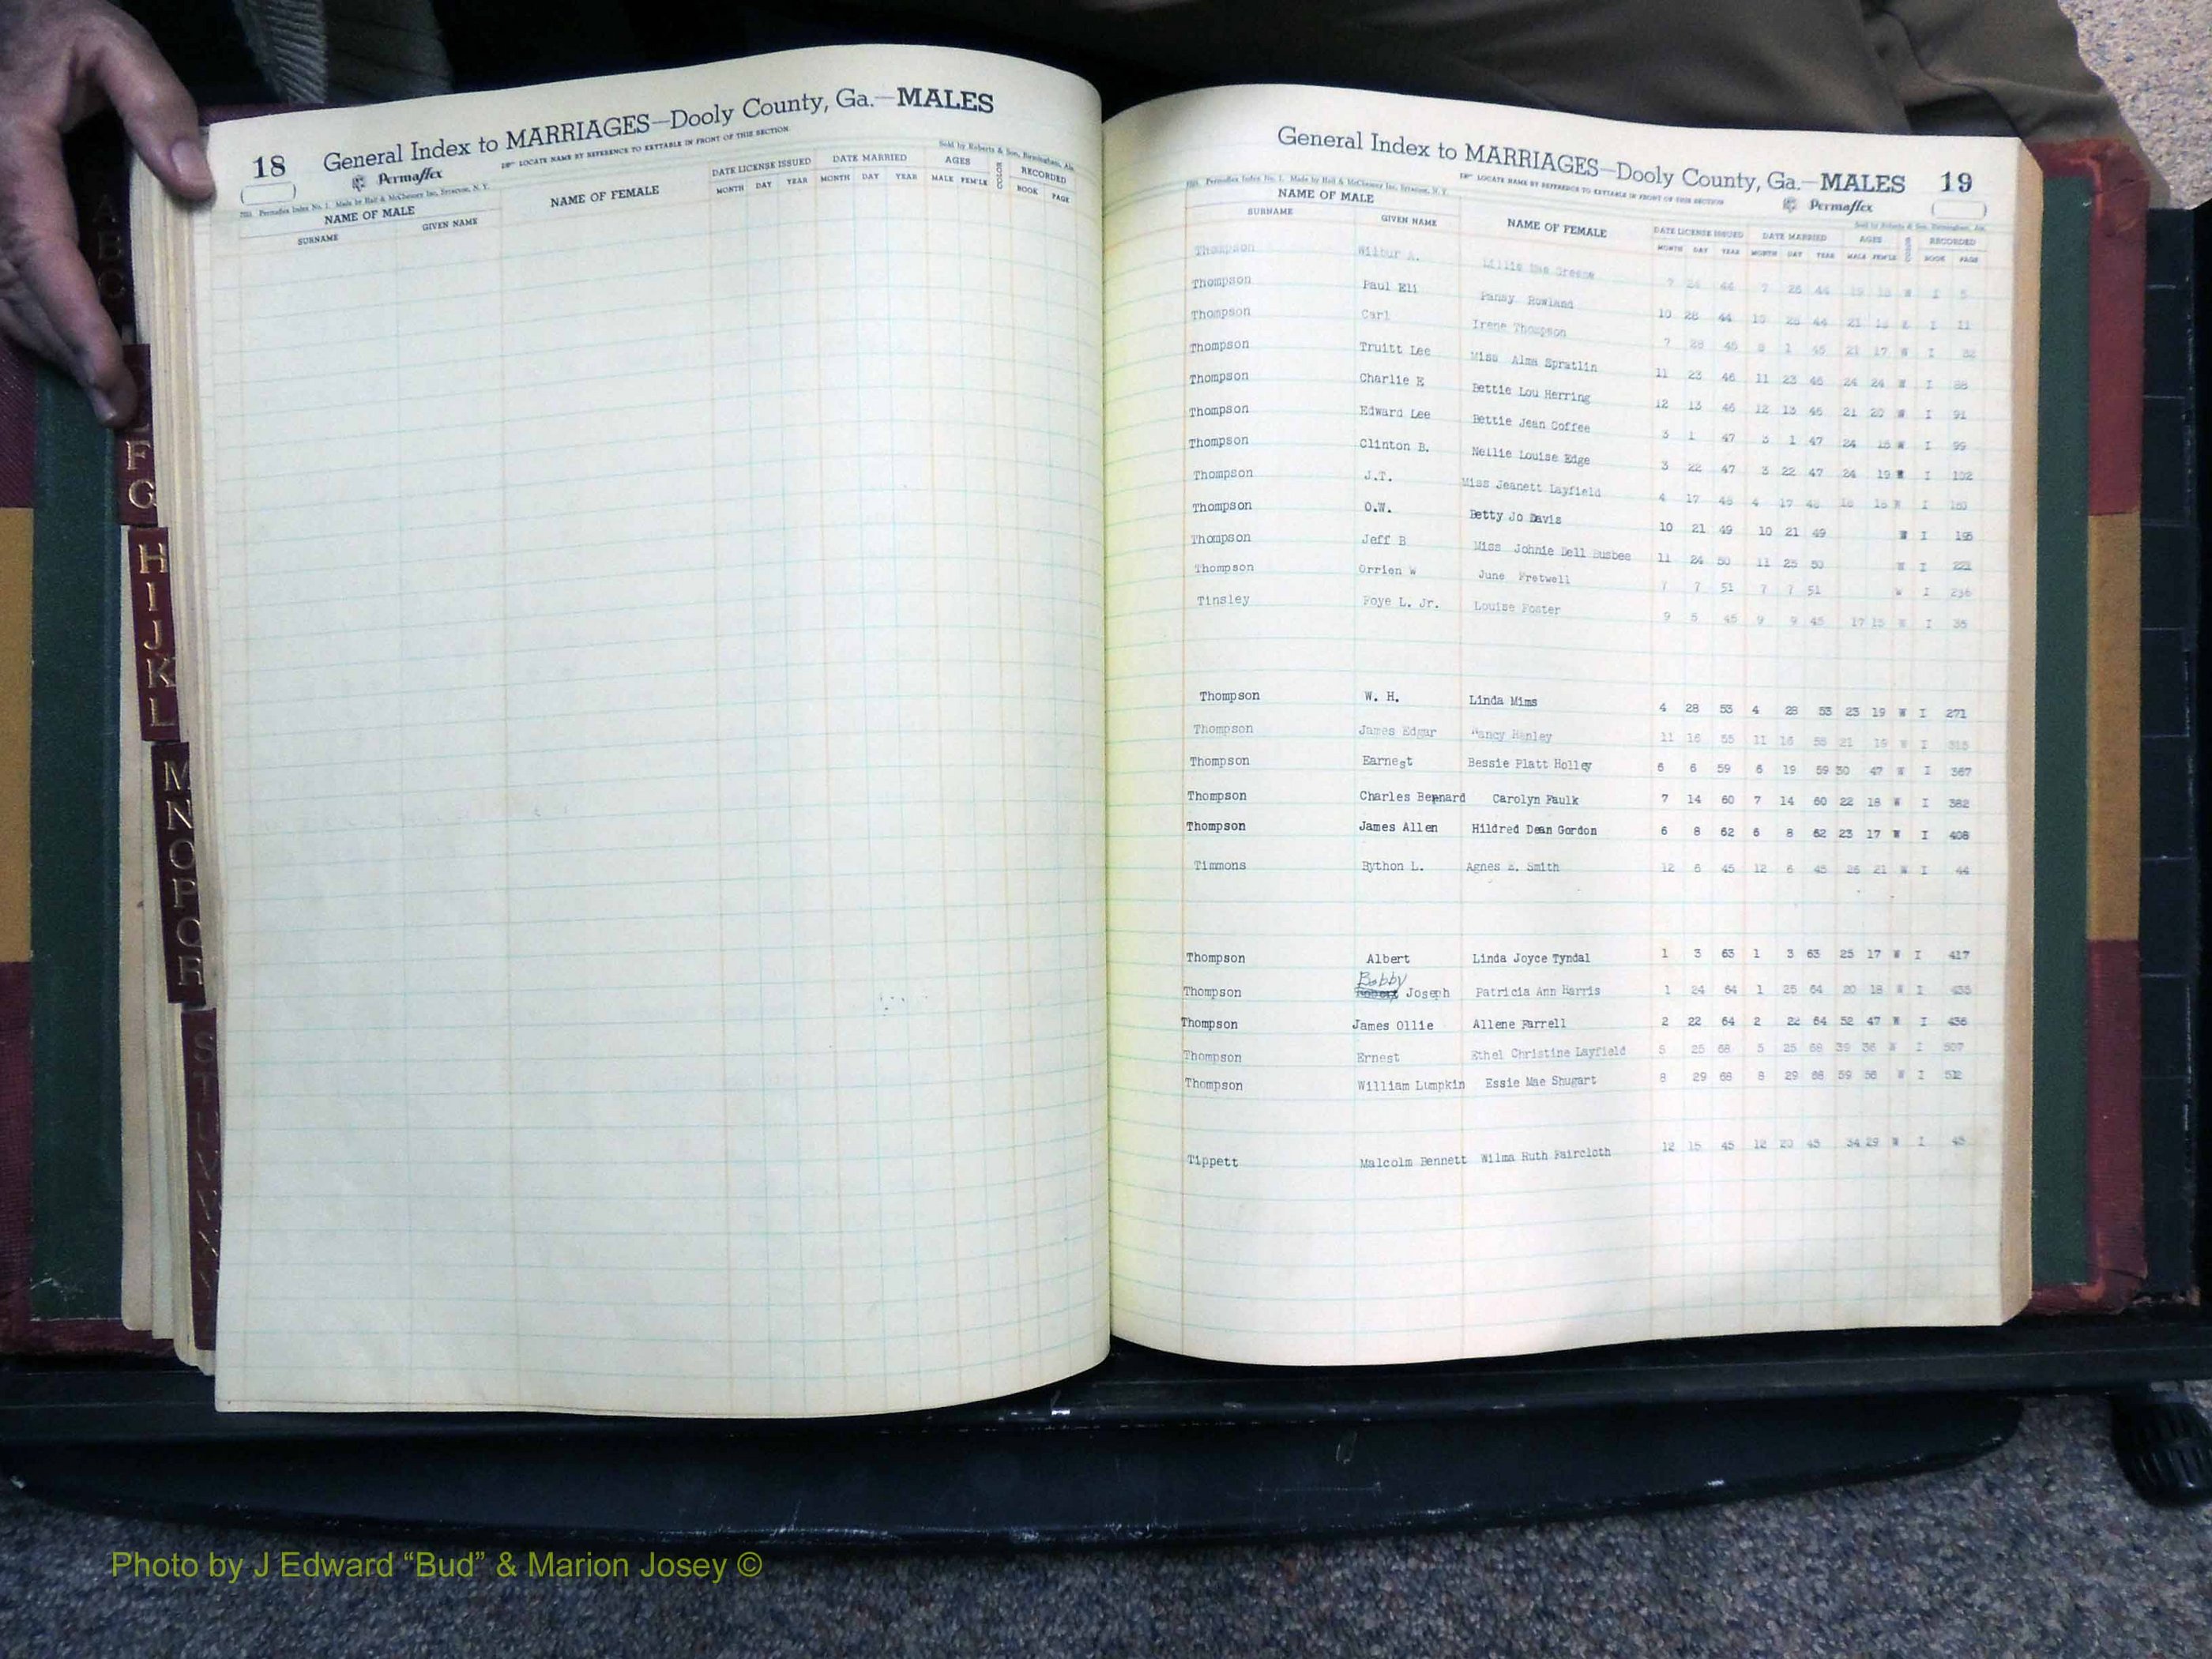 18 General Index to MARRIAGES—Dooly County, Ga.—MALES
Permaflex LOCATE NAME BY REFERENCE TO KEYTABLE IN FRONT OF THIS SECTION
Permaflex Index No. 1. Made by Hall & McChesney Inc, Syracuse, N. Y. Sold by Roberts & Son, Birmingham, Ala.
NAME OF MALE NAME OF FEMALE DATE LICENSE ISSUED DATE MARRIED AGES COLOR RECORDED
SURNAME GIVEN NAME MONTH DAY YEAR MONTH DAY YEAR MALE FEM'LE BOOK PAGE
A
B
C
F
G
H
I
J
K
L
M
N
O
P
Q
R
S
T
U
V
W
General Index to MARRIAGES—Dooly County, Ga.—MALES 19
LOCATE NAME BY REFERENCE TO KEYTABLE IN FRONT OF THIS SECTION Permaflex
Permaflex Index No. 1. Made by Hall & McChesney Inc, Syracuse, N. Y. Sold by Roberts & Son, Birmingham, Ala.
NAME OF MALE NAME OF FEMALE DATE LICENSE ISSUED DATE MARRIED AGES COLOR RECORDED
SURNAME GIVEN NAME MONTH DAY YEAR MONTH DAY YEAR MALE FEM'LE BOOK PAGE
Thompson Wilbur A. Lillie Mae Greene 7 26 44 7 26 44 W I 5
Thompson Paul Eli Pansy Rowland 10 28 44 10 28 44 I 11
Thompson Carl Irene Thompson 7 28 45 8 1 45 21 17 W I 32
Thompson Truitt Lee Miss Alma Spratlin 11 23 46 11 23 46 24 24 W I 88
Thompson Charlie E Bettie Lou Herring 12 13 46 12 13 46 21 20 W I 91
Thompson Edward Lee Bettie Jean Coffee 3 1 47 3 1 47 24 W I 99
Thompson Clinton B. Nellie Louise Edge 3 22 47 3 22 47 24 19 W I 102
Thompson J.T. Miss Jeanett Layfield 4 17 48 4 17 48 18 W I
Thompson O.W. Betty Jo Davis 10 21 49 10 21 49 W I
Thompson Jeff B Miss Johnie Dell Busbee 11 24 50 11 25 50 W I 221
Thompson Orrien W June Fretwell 7 7 51 7 7 51 W I 236
Tinsley Foye L. Jr. Louise Foster 9 5 45 9 9 45 17 15 W I 35
Thompson W. H. Linda Mims 4 28 53 4 28 53 23 19 W I 271
Thompson James Edgar Nancy Henley 11 16 55 11 16 55 21 19 W I 315
Thompson Earnest Bessie Platt Holley 6 6 59 6 19 59 30 47 W I 367
Thompson Charles Bernard Carolyn Faulk 7 14 60 7 14 60 22 18 W I 382
Thompson James Allen Hildred Dean Gordon 6 8 62 6 8 62 23 17 W I 408
Timmons Hython L. Agnes E. Smith 12 6 45 12 6 45 26 21 W I 44
Thompson Albert Linda Joyce Tyndal 1 3 63 1 3 63 25 17 W I 417
Bobby
Thompson Robert Joseph Patricia Ann Harris 1 24 64 1 25 64 20 18 W I 435
Thompson James Ollie Allene Farrell 2 22 64 2 22 64 52 47 W I 436
Thompson Ernest Ethel Christine Layfield 5 25 68 5 25 68 39 36 W I 507
Thompson William Lumpkin Essie Mae Shugart 8 29 68 8 29 68 59 56 W I 512
Tippett Malcolm Bennett Wilma Ruth Faircloth 12 15 45 12 20 45 34 29 W I 45
Photo by J Edward “Bud” & Marion Josey ©